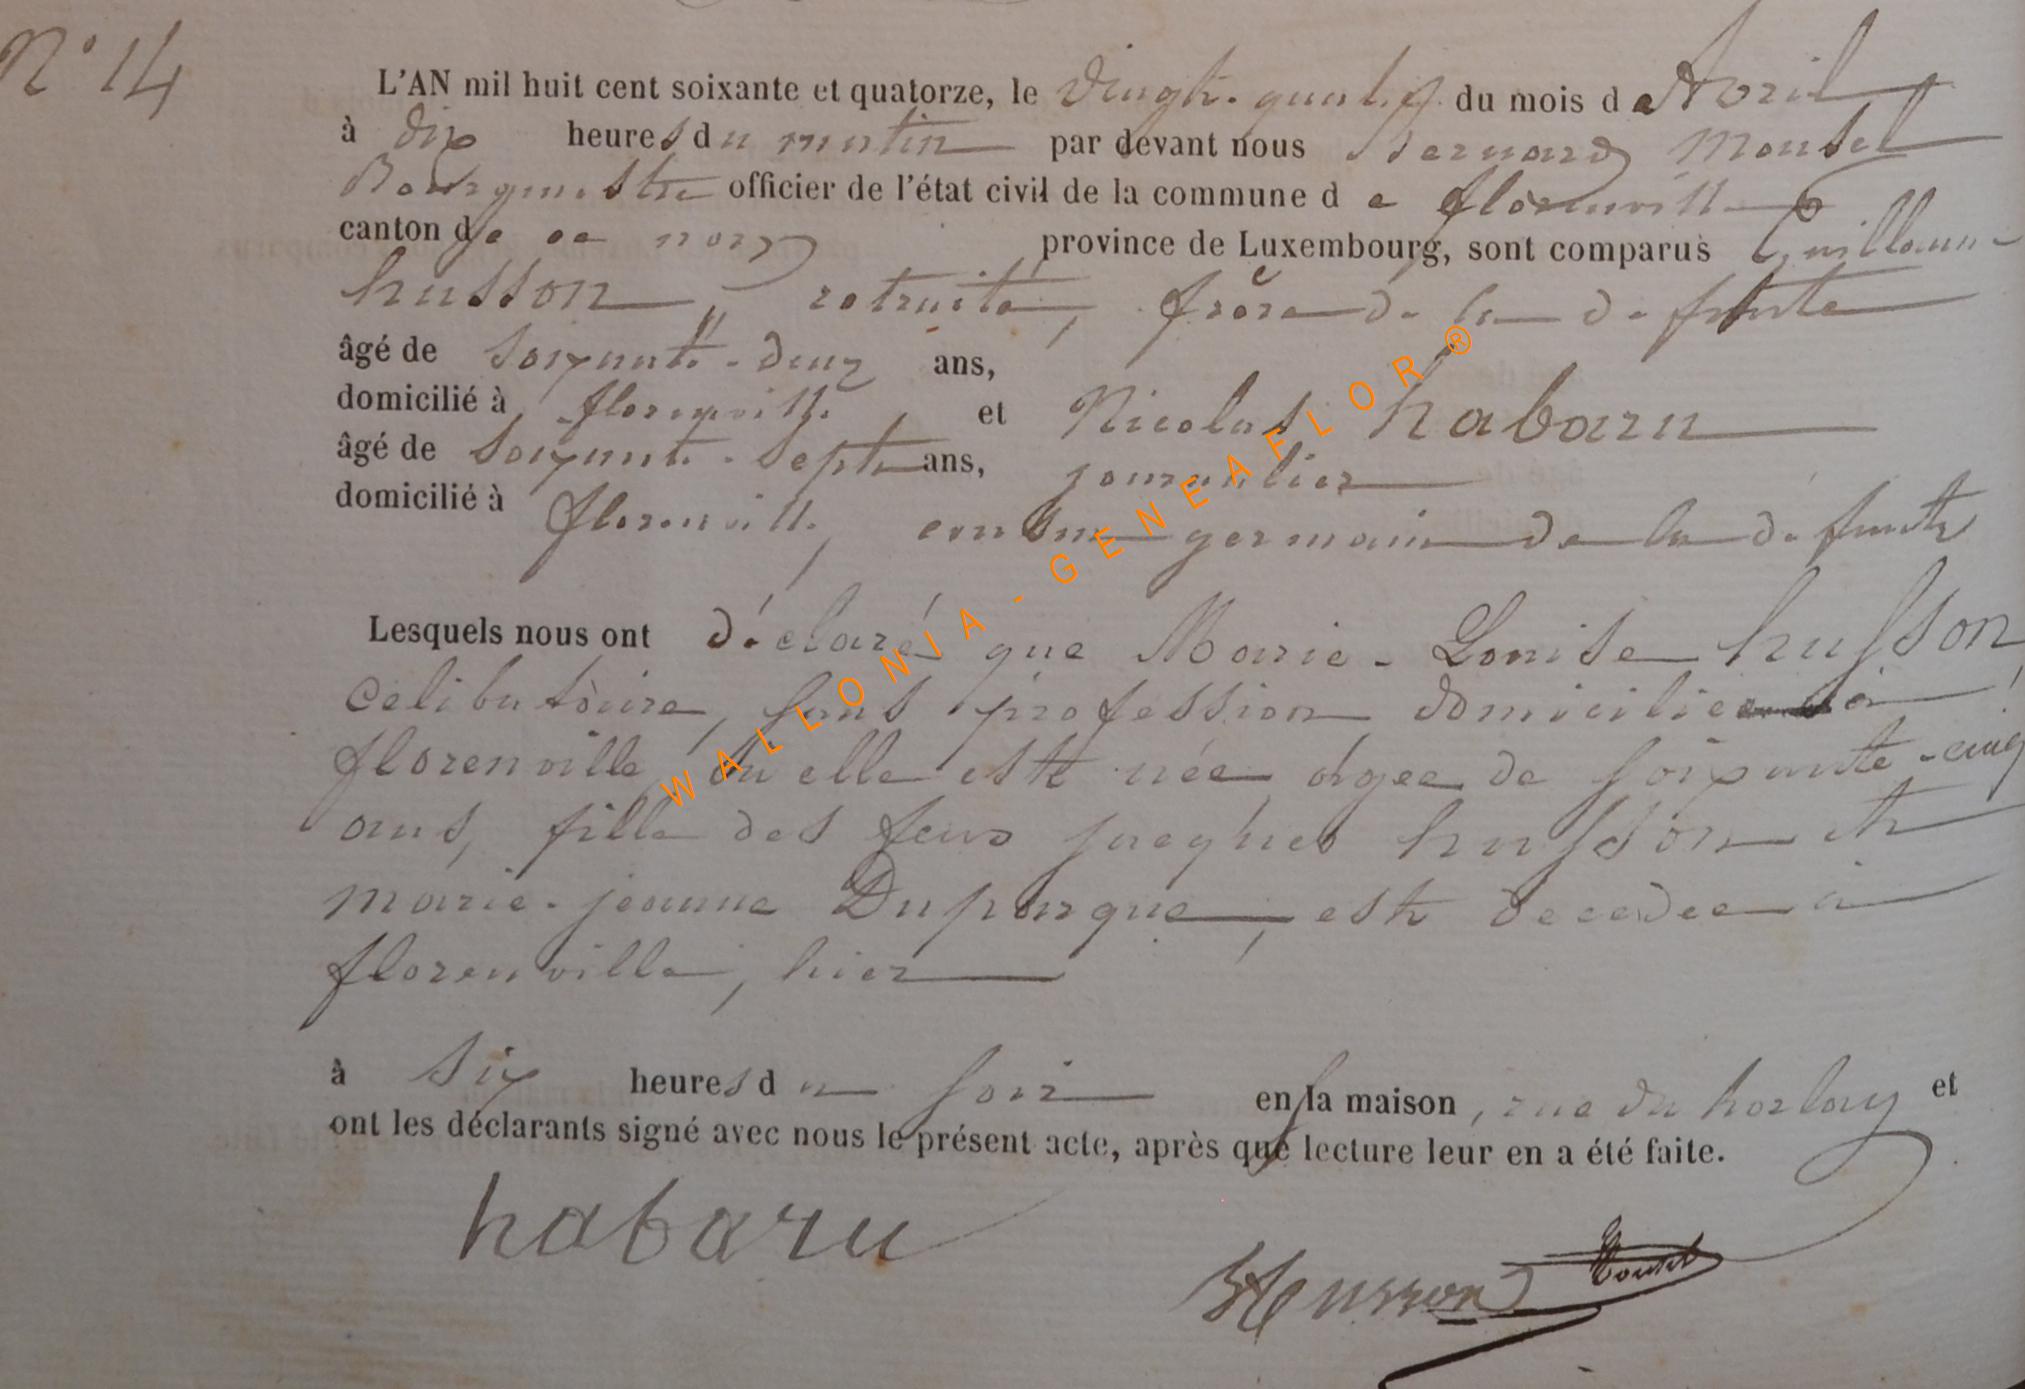 N° 14
L'AN mil huit cent soixante et quatorze, le Vingt-quatre du mois de Avril
à dix heures du matin par devant nous Bernard Monsel
Bourgmestre officier de l'état civil de la commune de florenville
canton de ce nom province de Luxembourg, sont comparus Guillaume
husson, retraité, frère de la défunte
âgé de soixante-deux ans,
domicilié à florenville, et Nicolas habaru
âgé de soixante-sept ans, journalier
domicilié à florenville, cousin germain de la défunte
Lesquels nous ont déclaré que Marie-Louise husson
celibataire, sans profession domiciliée à
florenville où elle est née, agee de soixante-cinq
ans, fille des feus jacques husson et
marie-jeanne Duparque, est decedee à
florenville, hier
à six heures du soir en sa maison, rue du horlay et
ont les déclarants signé avec nous le présent acte, après que lecture leur en a été faite.
habaru
Husson
Monsel
WALLONIA-GENEAFLOR®